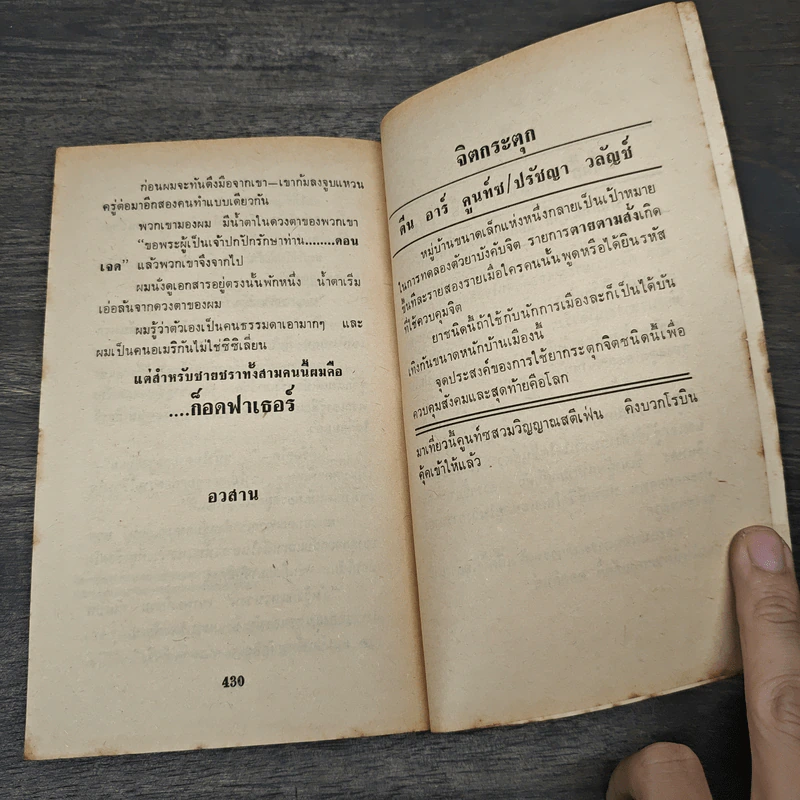 ก่อนผมจะทันดึงมือจากเขา—เขาก้มลงจูบแหวน
ครู่ต่อมาอีกสองคนทำแบบเดียวกัน
พวกเขามองผม มีน้ำตาในดวงตาของพวกเขา
“ขอพระผู้เป็นเจ้าปกปักรักษาท่าน........ดอน
เจด” แล้วพวกเขาจึงจากไป
ผมนั่งดูเอกสารอยู่ตรงนั้นพักหนึ่ง น้ำตาเริ่ม
เอ่อล้นจากดวงตาของผม
ผมรู้ว่าตัวเองเป็นคนธรรมดาเอามากๆ และ
ผมเป็นคนอเมริกันไม่ใช่ซิซิเลี่ยน
แต่สำหรับชายชราทั้งสามคนนี้ผมคือ
....ก็อดฟาเธอร์
อวสาน
430
จิตกระตุก
ดีน อาร์ คูนท์ซ/ปรัชญา วลัญช์
หมู่บ้านขนาดเล็กแห่งหนึ่งกลายเป็นเป้าหมาย
ในการทดลองตัวยาบังคับจิต รายการตายตามสั่งเกิด
ขึ้นทีละรายสองรายเมื่อใครคนนั้นพูดหรือได้ยินรหัส
ที่ใช้ควบคุมจิต
ยาชนิดนี้ถ้าใช้กับนักการเมืองละก็เป็นได้บัน
เทิงกันขนาดหนักบ้านเมืองนี้
จุดประสงค์ของการใช้ยากระตุกจิตชนิดนี้เพื่อ
ควบคุมสังคมและสุดท้ายคือโลก
มาเที่ยวนี้คูนท์ซสวมวิญญาณสตีเฟ่น คิงบวกโรบิน
คุ้คเข้าให้แล้ว